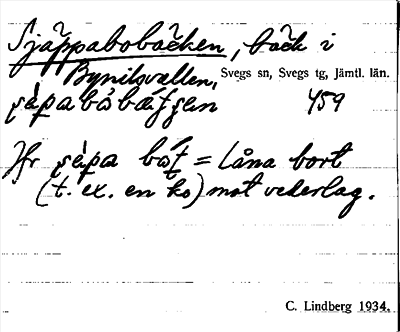 Sjäppabobäcken, bäck i
Bynilsvallen, Svegs sn, Svegs tg, Jämtl. län.
459
Jfr bót = låna bort
(t. ex. en ko) mot vederlag.
C. Lindberg 1934.